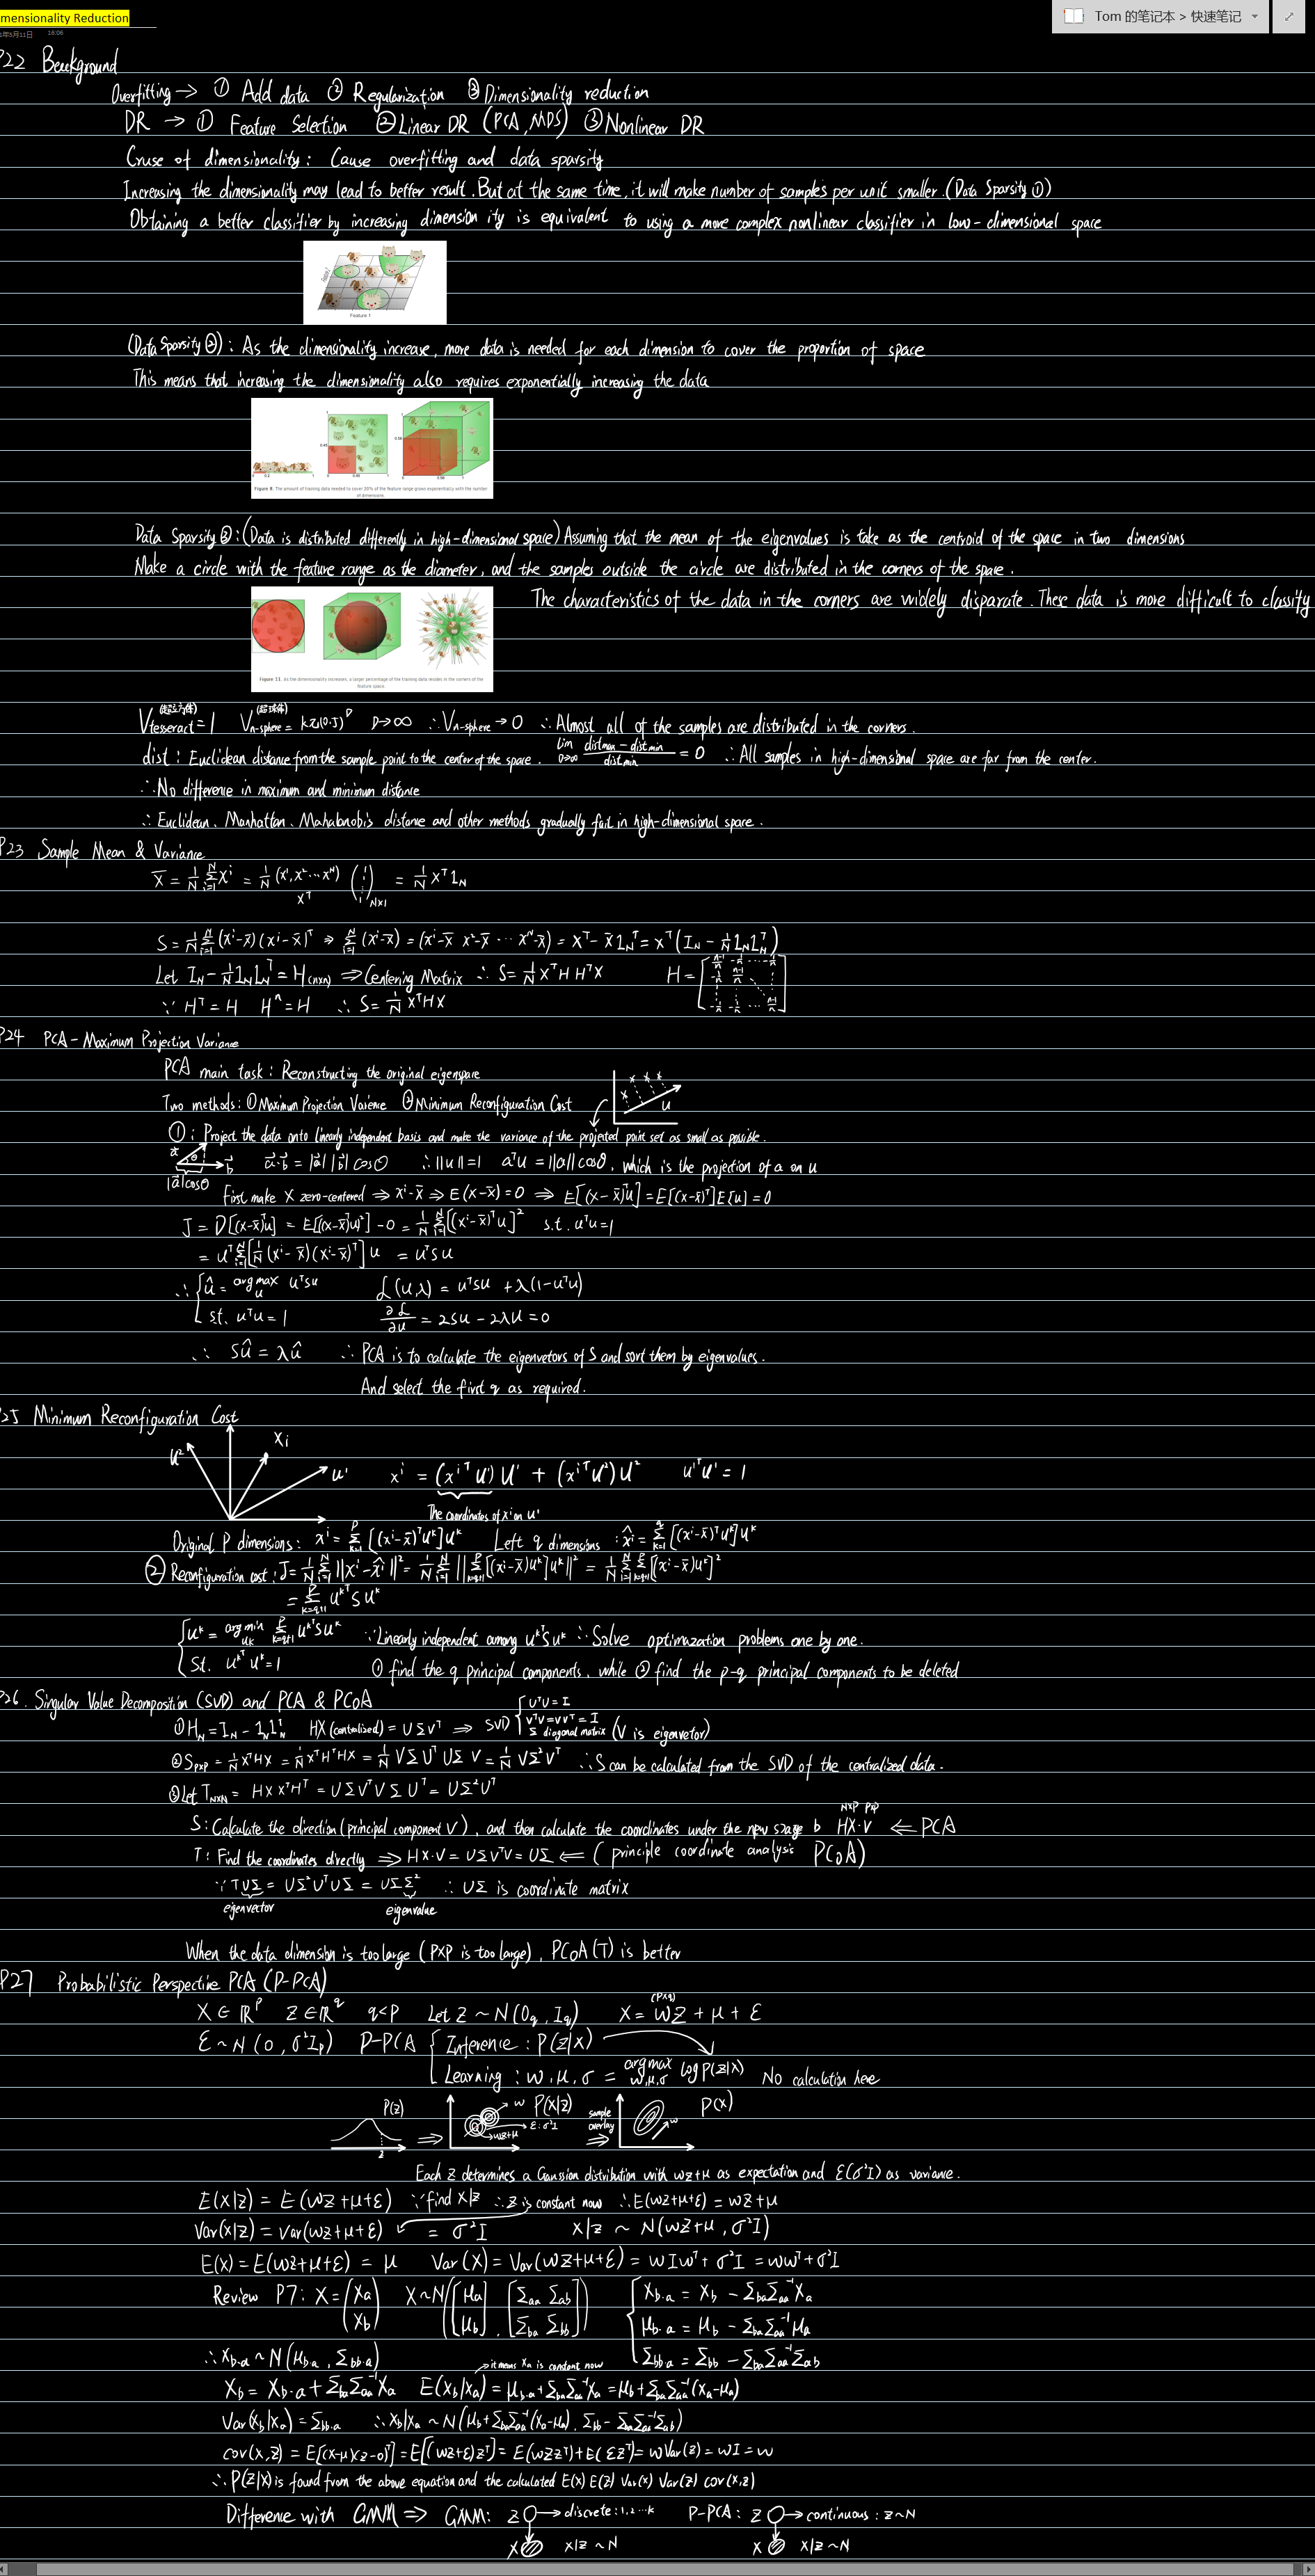 mensionality Reduction
Tom 的笔记本 > 快速笔记
年5月11日 16:06
P22 Background
Overfitting → ① Add data ② Regularization ③ Dimensionality reduction
DR → ① Feature Selection ② Linear DR (PCA, MDS) ③ Nonlinear DR
Cruse of dimensionality: Cause overfitting and data sparsity
Increasing the dimensionality may lead to better result. But at the same time, it will make number of samples per unit smaller. (Data Sparsity ①)
Obtaining a better classifier by increasing dimension ity is equivalent to using a more complex nonlinear classifier in low-dimensional space
Feature 1
(Data Sparsity ②): As the dimensionality increase, more data is needed for each dimension to cover the proportion of space
This means that increasing the dimensionality also requires exponentially increasing the data
Figure 8. The amount of training data needed to cover 20% of the feature range grows exponentially with the number
of dimensions.
Data Sparsity ③: (Data is distributed differently in high-dimensional space) Assuming that the mean of the eigenvalues is take as the centroid of the space in two dimensions
Make a circle with the feature range as the diameter, and the samples outside the circle are distributed in the corners of the space.
The characteristics of the data in the corners are widely disparate. These data is more difficult to classify
Figure 11. As the dimensionality increases, a larger percentage of the training data resides in the corners of the
feature space.
V tesseract (超立方体) = 1 V n-sphere (超球体) = kπ(0.5)^D D→∞ ∴ V n-sphere → 0 ∴ Almost all of the samples are distributed in the corners.
dist: Euclidean distance from the sample point to the center of the space. lim D→∞ (dist max − dist min)/dist min = 0 ∴ All samples in high-dimensional space are far from the center.
∴ No difference in maximum and minimum distance
∴ Euclidean、Manhattan、Mahalanobis distance and other methods gradually fail in high-dimensional space.
P23 Sample Mean & Variance
X̄ = 1/N Σ_{i=1}^N x^i = 1/N (x^1, x^2 ⋯ x^N) (1 ⋮ 1)_{N×1} = 1/N X^T 1_N
X^T
S = 1/N Σ_{i=1}^N (x^i − x̄)(x^i − x̄)^T ⇒ Σ_{i=1}^N (x^i − x̄) = (x^1 − x̄ x^2 − x̄ ⋯ x^N − x̄) = X^T − x̄ 1_N^T = X^T (I_N − 1/N 1_N 1_N^T)
Let I_N − 1/N 1_N 1_N^T = H_(n×n) ⇒ Centering Matrix ∴ S = 1/N X^T H H^T X H =
∵ H^T = H H^n = H ∴ S = 1/N X^T H X
P24 PCA - Maximum Projection Variance
PCA main task: Reconstructing the original eigenspace
Two methods: ① Maximum Projection Varience ② Minimum Reconfiguration Cost
u
①: Project the data onto linearly independent basis and make the variance of the projected point set as small as possible.
a θ b a·b = |a||b| cosθ ∴ ||u|| = 1 a^T u = ||a|| cosθ, which is the projection of a on u
|a|cosθ
First make X zero-centered ⇒ x^i − x̄ ⇒ E(x − x̄) = 0 ⇒ E[(x − x̄)^T u] = E[(x − x̄)^T] E[u] = 0
J = D[(x − x̄)^T u] = E[((x − x̄)^T u)^2] − 0 = 1/N Σ_{i=1}^N [(x^i − x̄)^T u]^2 s.t. u^T u = 1
= u^T Σ_{i=1}^N [1/N (x^i − x̄)(x^i − x̄)^T] u = u^T S u
∴ { û = argmax_u u^T S u L(u,λ) = u^T S u + λ(1 − u^T u)
st. u^T u = 1 ∂L/∂u = 2Su − 2λu = 0
∴ Sû = λû ∴ PCA is to calculate the eigenvetors of S and sort them by eigenvalues.
And select the first q as required.
P25 Minimum Reconfiguration Cost
u^2 X_i u^1 x^i = (x^{iT} u^1) u^1 + (x^{iT} u^2) u^2 u^{1T} u^1 = 1
The coordinates of x^i on u^1
Original P dimensions: x^i = Σ_{k=1}^P [(x^i − x̄)^T u^k] u^k Left q dimensions: x̂^i = Σ_{k=1}^q [(x^i − x̄)^T u^k] u^k
② Reconfiguration cost: J = 1/N Σ_{i=1}^N ||x^i − x̂^i||^2 = 1/N Σ_{i=1}^N ||Σ_{k=q+1}^P [(x^i − x̄) u^k] u^k||^2 = 1/N Σ_{i=1}^N Σ_{k=q+1}^P [(x^i − x̄) u^k]^2
= Σ_{k=q+1}^P u^{kT} S u^k
{ u^k = argmin_{u_k} Σ_{k=q+1}^P u^{kT} S u^k ∵ Linearly independent among u^{kT} S u^k ∴ Solve optimazation problems one by one.
St. u^{kT} u^k = 1 ① find the q principal components, while ② find the p-q principal components to be deleted
P26. Singular Value Decomposition (SVD) and PCA & PCoA
① H_N = I_N − 1_N 1_N^T HX (centralised) = UΣV^T ⇒ SVD { U^T U = I
V^T V = V V^T = I
Σ diagonal matrix (V is eigenvetor)
② S_{P×P} = 1/N X^T H X = 1/N X^T H^T H X = 1/N V Σ U^T U Σ V = 1/N V Σ^2 V^T ∴ S can be calculated from the SVD of the centralized data.
③ Let T_{N×N} = H X X^T H^T = U Σ V^T V Σ U^T = U Σ^2 U^T
N×P P×P
S: Calculate the direction (principal component V), and then calculate the coordinates under the new space b HX·V ⇐ PCA
T: Find the coordinates directly ⇒ HX·V = UΣV^T V = UΣ ⇐ (principle coordinate analysis PCoA)
∵ TUΣ = UΣ^2 U^T UΣ = UΣΣ^2 ∴ UΣ is coordinate matrix
eigenvector eigenvalue
When the data dimension is too large (P×P is too large), PCoA (T) is better
P27 Probabilistic Perspective PCA (P-PCA)
X ∈ R^P Z ∈ R^q q < P Let Z ~ N(0_q, I_q) X = W (P×q) Z + μ + ε
ε ~ N(0, σ^2 I_P) P-PCA { Inference: P(z|x)
Learning: w, μ, σ = argmax_{w,μ,σ} log P(z|x) No calculation here
P(z) w P(x|z) ε: σ^2 I wz+μ sample overlay P(x) w
z
Each z determines a Gaussion distribution with wz+μ as expectation and ε(σ^2 I) as variance.
E(x|z) = E(wz+μ+ε) ∵ find x|z ∴ z is constant now ∴ E(wz+μ+ε) = wz+μ
Var(x|z) = Var(wz+μ+ε) = σ^2 I x|z ~ N(wz+μ, σ^2 I)
E(x) = E(wz+μ+ε) = μ Var(x) = Var(wz+μ+ε) = w I w^T + σ^2 I = ww^T + σ^2 I
Review P7: X = (X_a X_b) X ~ N([μ_a μ_b], [Σ_aa Σ_ab Σ_ba Σ_bb]) { X_{b·a} = X_b − Σ_ba Σ_aa^{-1} X_a
μ_{b·a} = μ_b − Σ_ba Σ_aa^{-1} μ_a
∴ X_{b·a} ~ N(μ_{b·a}, Σ_{bb·a}) Σ_{bb·a} = Σ_bb − Σ_ba Σ_aa^{-1} Σ_ab
it means x_a is constant now
X_b = X_{b·a} + Σ_ba Σ_aa^{-1} X_a E(X_b|X_a) = μ_{b·a} + Σ_ba Σ_aa^{-1} X_a = μ_b + Σ_ba Σ_aa^{-1} (x_a − μ_a)
Var(X_b|X_a) = Σ_{bb·a} ∴ X_b|X_a ~ N(μ_b + Σ_ba Σ_aa^{-1} (x_a − μ_a), Σ_bb − Σ_ba Σ_aa^{-1} Σ_ab)
cov(x,z) = E[(x−μ)(z−0)^T] = E[(wz+ε) z^T] = E(wzz^T) + E(εz^T) = w Var(z) = wI = w
∴ P(z|x) is found from the above equation and the calculated E(x) E(z) Var(x) Var(z) cov(x,z)
Difference with GMM ⇒ GMM: Z → discrete: 1,2⋯K P-PCA: Z → continuous: z~N
X x|z ~ N X x|z ~ N